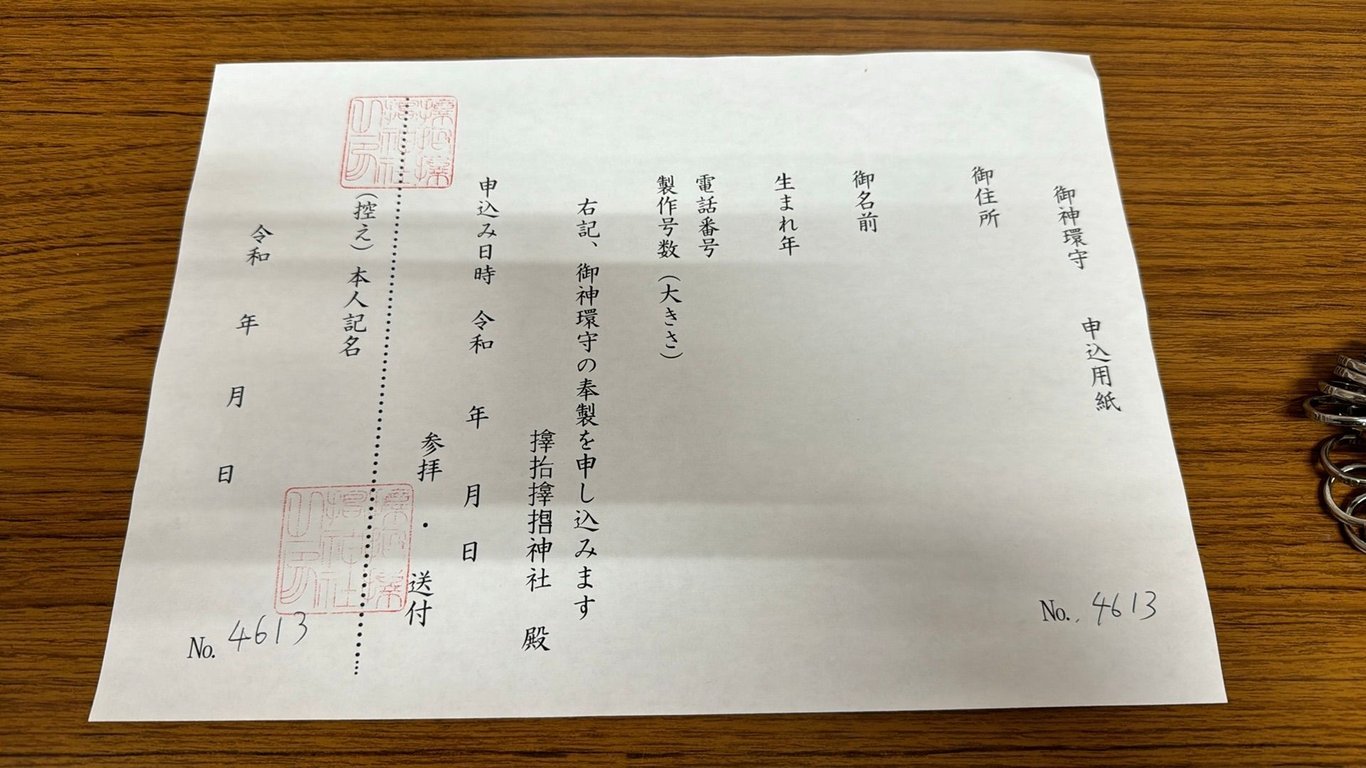 御神環守　申込用紙
No. 4613
御住所
御名前
生まれ年
電話番号
製作号数（大きさ）
右記、御神環守の奉製を申し込みます
𪮷抬𪮷𪮇神社　殿
申込み日時　令和　年　月　日
参拝・送付
（控え）本人記名
令和　年　月　日
No. 4613